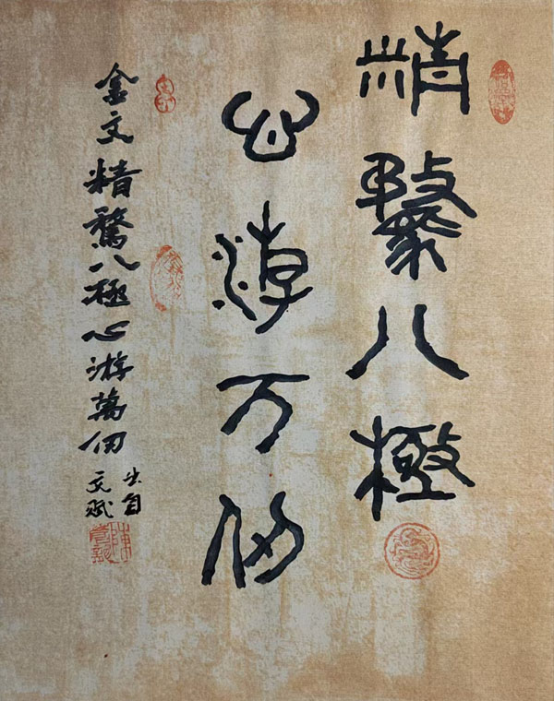 精骛八极
心游万仞
金文精骛八極心游萬仞
出自
文赋